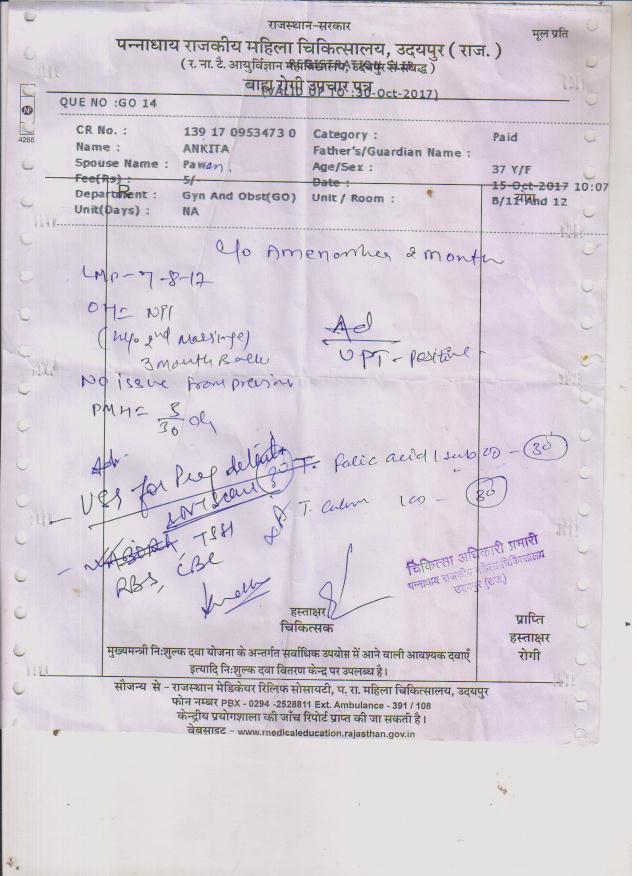 राजस्थान-सरकार
मूल प्रति
पन्नाधाय राजकीय महिला चिकित्सालय, उदयपुर ( राज. )
( र. ना. टै. आयुर्विज्ञान महाविद्यालय, उदयपुर से संबद्ध )
बाह्य रोगी उपचार पत्र
(VALID UP TO :30-Oct-2017)
QUE NO :GO 14
4266
CR No. : 139 17 0953473 0 Category : Paid
Name : ANKITA Father's/Guardian Name :
Spouse Name : Pawan. Age/Sex : 37 Y/F
Fee(Rs) : 5/- Date : 15-Oct-2017 10:07
Department : Gyn And Obst(GO) Unit / Room : B/11 And 12
Unit(Days) : NA
रोग
C/o Amenorrhea 2 month
LMP - 7-8-17
OH =
2nd Marriage)
3 month
Ad
UPT - Positive
No issue from previous
PMH = 5/30
Adv
- USG for Preg
NT Scan
T. Folic acid 1 OD - 30
T. 1 OD - 30
TSH
RBS, CBC
चिकित्सा अधिकारी प्रभारी
पन्नाधाय राजकीय महिला चिकित्सालय
उदयपुर (राज.)
हस्ताक्षर
चिकित्सक
प्राप्ति
हस्ताक्षर
रोगी
मुख्यमन्त्री निःशुल्क दवा योजना के अन्तर्गत सर्वाधिक उपयोग में आने वाली आवश्यक दवाएँ
इत्यादि निःशुल्क दवा वितरण केन्द्र पर उपलब्ध है।
सौजन्य से - राजस्थान मेडिकेयर रिलिफ सोसायटी, प. रा. महिला चिकित्सालय, उदयपुर
फोन नम्बर PBX - 0294 -2528811 Ext. Ambulance - 391 / 108
केन्द्रीय प्रयोगशाला की जाँच रिपोर्ट प्राप्त की जा सकती है।
वेबसाइट - www.medicaleducation.rajasthan.gov.in